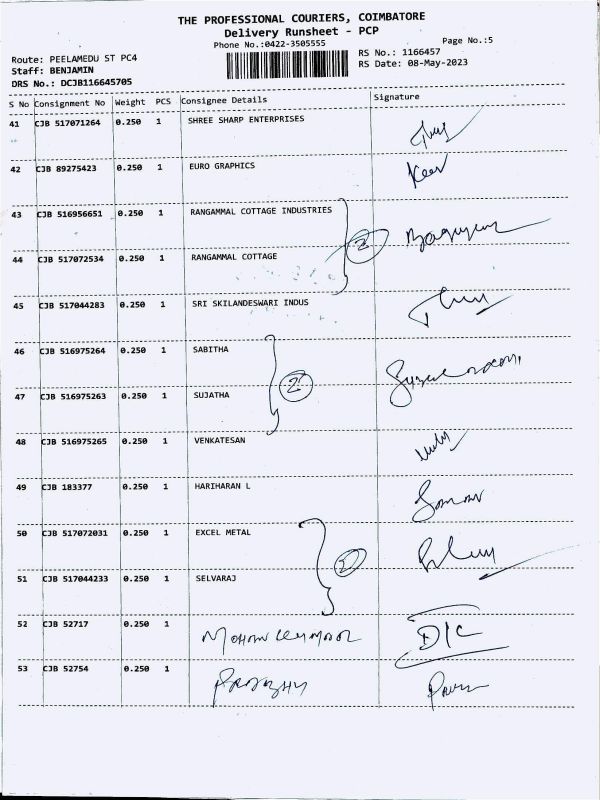 THE PROFESSIONAL COURIERS, COIMBATORE
Delivery Runsheet - PCP
Phone No.:0422-3505555 Page No.:5
Route: PEELAMEDU ST PC4 RS No.: 1166457
Staff: BENJAMIN RS Date: 08-May-2023
DRS No.: DCJB116645705
S No Consignment No Weight PCS Consignee Details Signature
41 CJB 517071264 0.250 1 SHREE SHARP ENTERPRISES
42 CJB 89275423 0.250 1 EURO GRAPHICS
43 CJB 516956651 0.250 1 RANGAMMAL COTTAGE INDUSTRIES
2
44 CJB 517072534 0.250 1 RANGAMMAL COTTAGE
45 CJB 517044283 0.250 1 SRI SKILANDESWARI INDUS
46 CJB 516975264 0.250 1 SABITHA
2
47 CJB 516975263 0.250 1 SUJATHA
48 CJB 516975265 0.250 1 VENKATESAN
49 CJB 183377 0.250 1 HARIHARAN L
50 CJB 517072031 0.250 1 EXCEL METAL
2
51 CJB 517044233 0.250 1 SELVARAJ
52 CJB 52717 0.250 1 D/C
53 CJB 52754 0.250 1